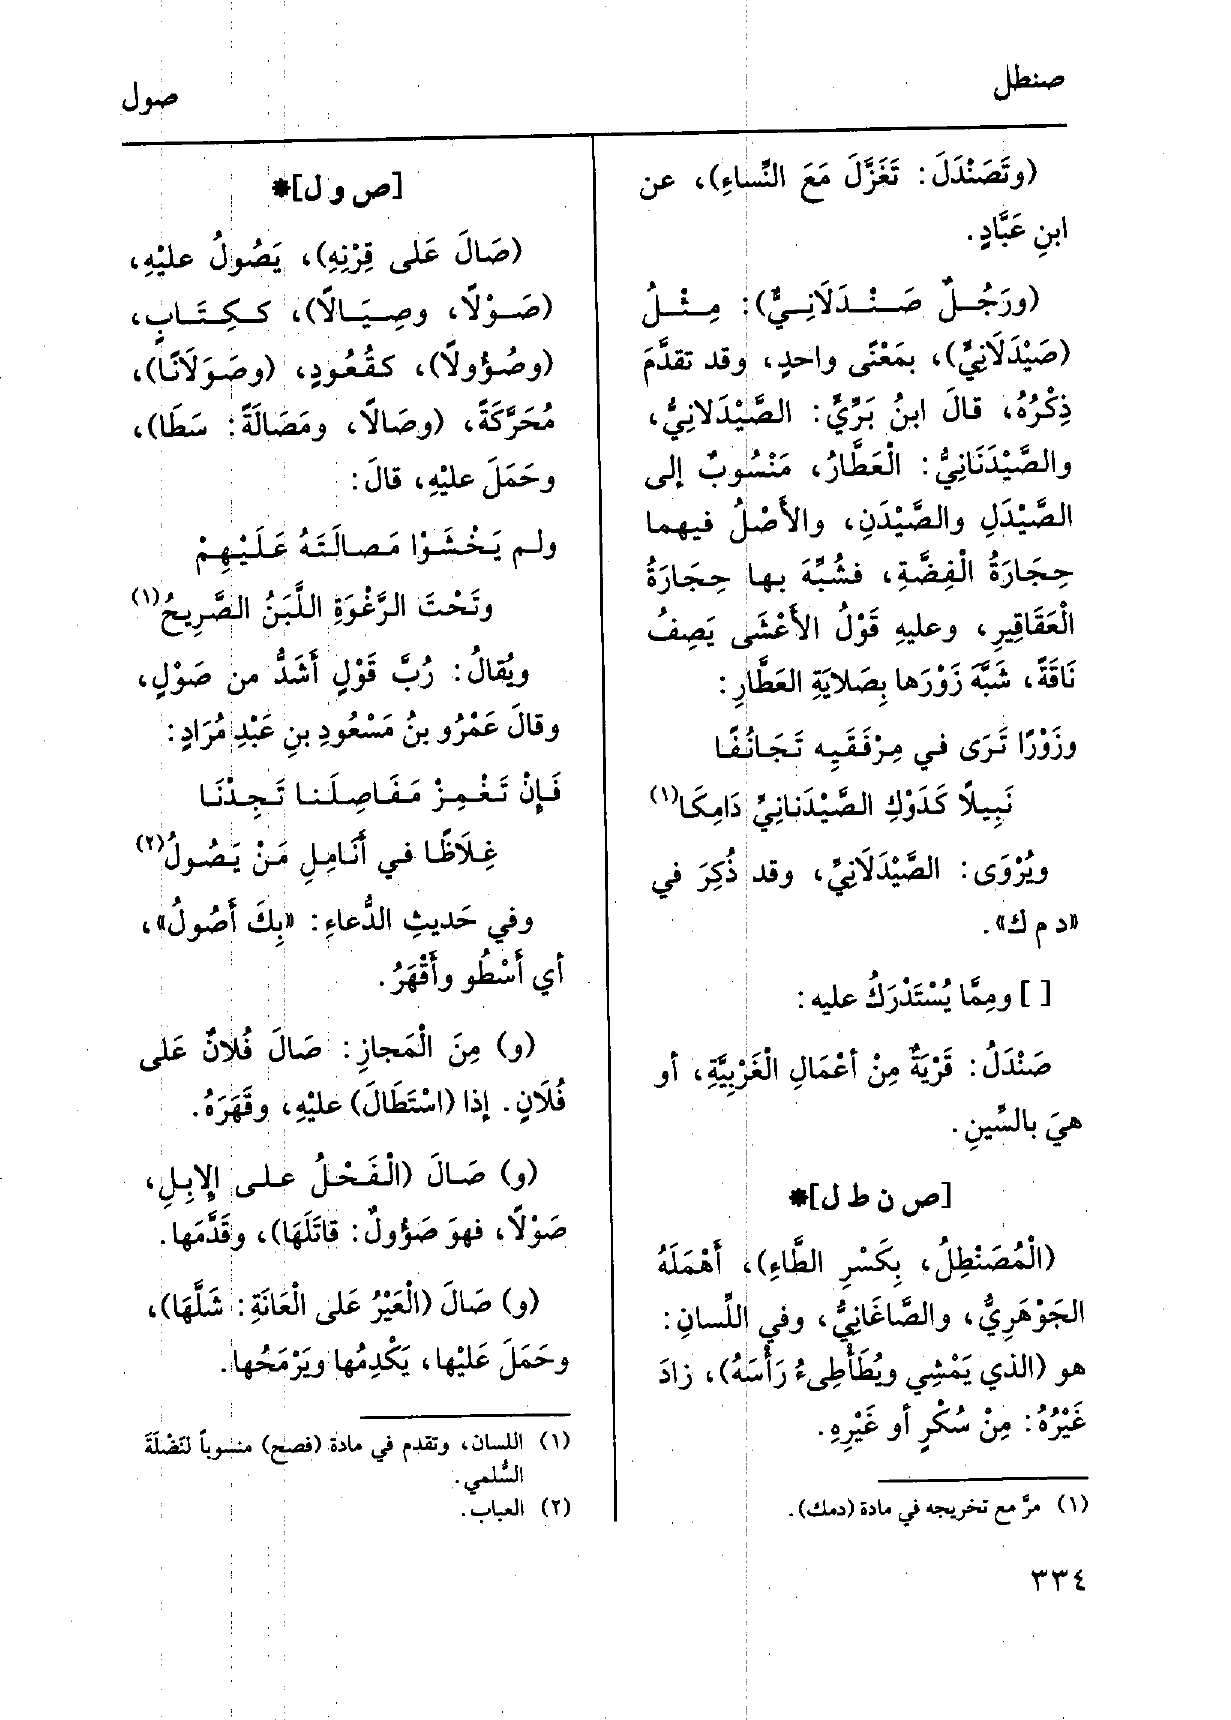 صنطل
صول
(وتَصَنْدَلَ: تَغَزَّلَ مَعَ النِّساءِ)، عن
ابنِ عَبَّادٍ.
(ورَجُلٌ صَنْدَلَانِيٌّ): مِثْلُ
(صَيْدَلَانِيٍّ)، بمَعْنًى واحدٍ، وقد تقدَّمَ
ذِكْرُهُ، قالَ ابنُ بَرِّيٍّ: الصَّيْدلانِيُّ،
والصَّيْدَنَانِيُّ: الْعَطَّارُ، مَنْسُوبٌ إلى
الصَّيْدَلِ والصَّيْدَنِ، والأَصْلُ فيهما
حِجَارَةُ الْفِضَّةِ، فشُبِّهَ بها حِجَارَةُ
الْعَقَاقِيرِ، وعليهِ قَوْلُ الأَعْشَى يَصِفُ
نَاقَةً، شَبَّهَ زَوْرَها بِصَلايَةِ العَطَّارِ:
وزَوْرًا تَرَى في مِرْفَقَيِه تَجَانُفًا
نَبِيلًا كَدَوْكِ الصَّيْدَنانِيِّ دَامِكَا(١)
ويُرْوَى: الصَّيْدَلَانِيِّ، وقد ذُكِرَ في
«د م ك».
[ ] ومِمَّا يُسْتَدْرَكُ عليه:
صَنْدَلُ: قَرْيَةٌ مِنْ أعْمَالِ الْغَرْبِيَّةِ، أو
هيَ بالسِّينِ.
[ص ن ط ل]*
(الْمُصَنْطِلُ، بِكَسْرِ الطَّاءِ)، أَهْمَلَهُ
الجَوْهَرِيُّ، والصَّاغَانِيُّ، وفي اللِّسانِ:
هو (الذي يَمْشِي ويُطَأْطِىءُ رَأْسَهُ)، زادَ
غَيْرُهُ: مِنْ سُكْرٍ أو غَيْرِهِ.
(١) مرَّ مع تخريجه في مادة (دمك).
[ص و ل]*
(صَالَ عَلى قِرْنِهِ)، يَصُولُ عليْهِ،
(صَوْلًا، وصِيَالًا)، ككِتَابٍ،
(وصُؤُولاً)، كقُعُودٍ، (وصَوَلَانًا)،
مُحَرَّكَةً، (وصَالًا، ومَصَالَةً: سَطَا)،
وحَمَلَ عليْهِ، قالَ:
ولم يَخْشَوْا مَصالَتَهُ عَلَيْهِمْ
وتَحْتَ الرَّغْوَةِ اللَّبَنُ الصَّرِيحُ(١)
ويُقالُ: رُبَّ قَوْلٍ أَشَدُّ من صَوْلٍ،
وقالَ عَمْرُو بنُ مَسْعُودِ بنِ عَبْدِ مُرَادٍ:
فَإِنْ تَغْمِزْ مَفَاصِلَنا تَجِدْنَا
غِلَاظًا في أَنَامِلِ مَنْ يَصُولُ(٢)
وفي حَديثِ الدُّعاءِ: «بِكَ أَصُولُ»،
أي أَسْطُو وأَقْهَرُ.
(و) مِنَ الْمَجازِ: صَالَ فُلانٌ عَلى
فُلَانٍ. إذا (اسْتَطَالَ) عليْهِ، وقَهَرَهُ.
(و) صَالَ (الْفَحْلُ على الإبِلِ،
صَوْلًا، فهوَ صَؤُولٌ: قاتَلَهَا)، وقَدَّمَها.
(و) صَالَ (الْعَيْرُ عَلى الْعَانَةِ: شَلَّهَا)،
وحَمَلَ عَليْها، يَكْدِمُها ويَرْمَحُها.
(١) اللسان، وتقدم في مادة (فصح) منسوباً لنَضْلَةَ
السُّلمي.
(٢) العباب.
٣٣٤